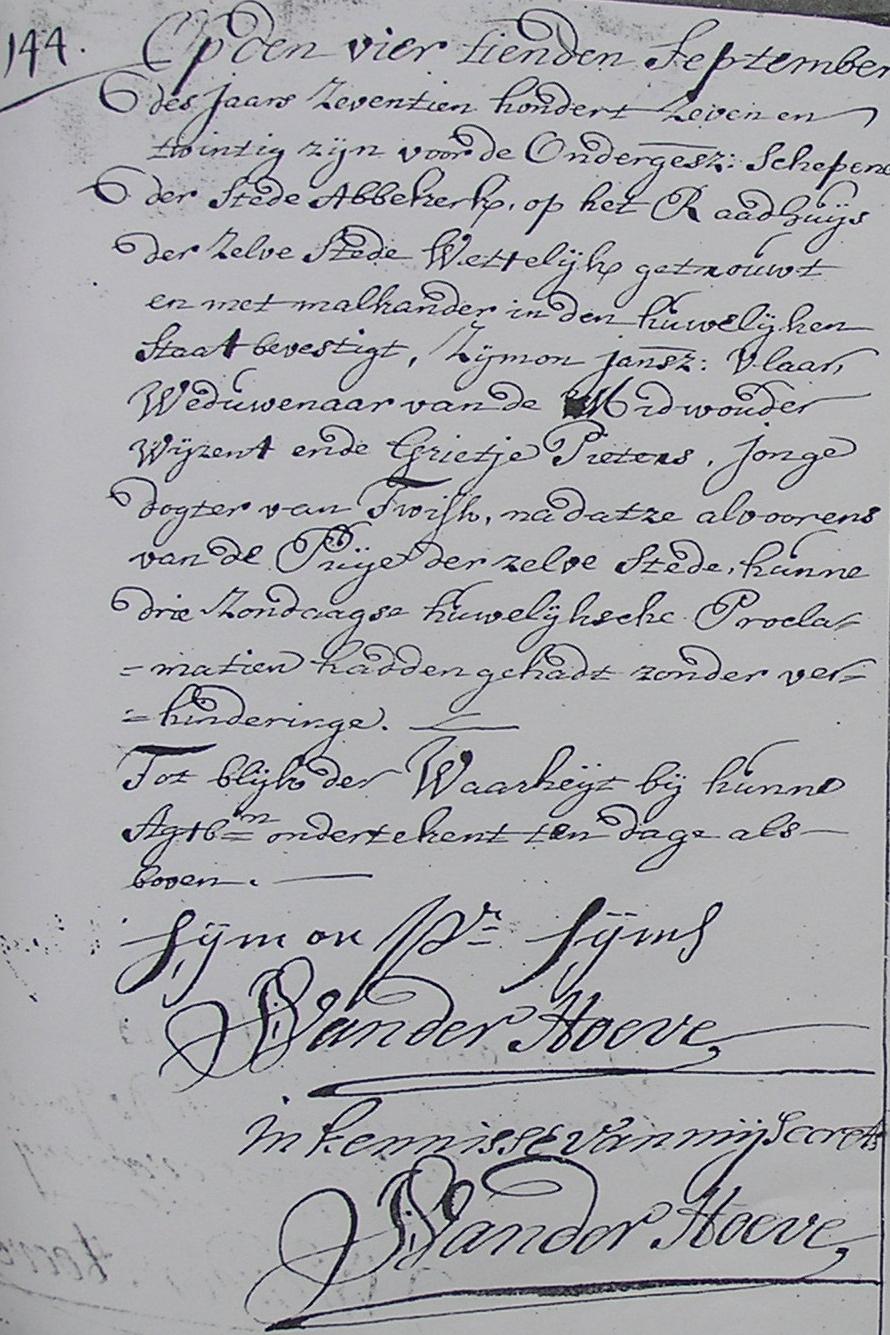 144. Op den vier tienden September
des jaars Zeventien hondert Zeven en
twintig zijn voor de Ondergesz: Schepene
der Stede Abbekerk, op het Raadhuijs
der Zelve Stede Wettelijk getrouwt
en met malkander in den huwelijken
Staat bevestigt, Zijmon jansz: Vlaar,
Weduwenaar van de Midwouder
Wijzent ende Grietje Pieters, jonge
dogter van Twisk, nadatze alvoorens
van de Puije der zelve Stede, hunne
drie Zondaagse huwelijksche Procla=
=matien hadden gehadt zonder ver=
=hinderinge.
Tot blijk der Waarheijt bij hunne
Agtb:n ondertekent ten dage als
boven.
Sijmon Pr Sijms
Vander Hoeve
in kennisse van mij Secrets
Vander Hoeve